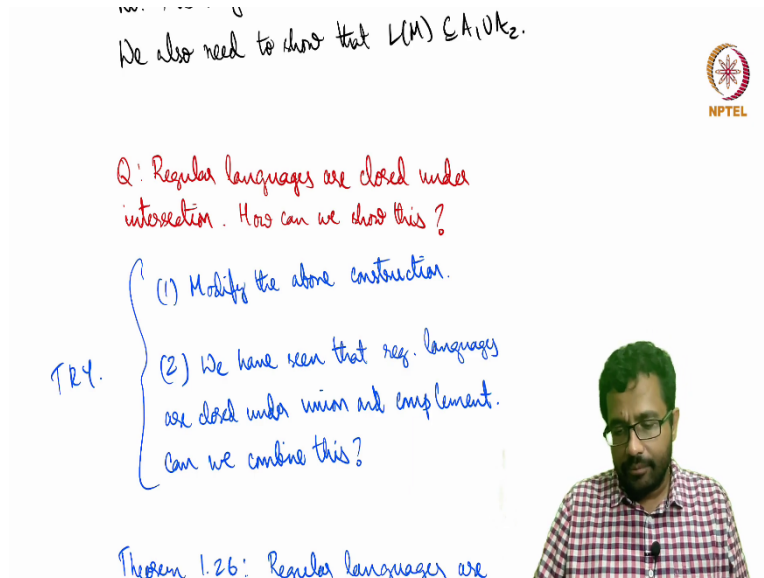 We also need to show that L(M) ⊆ A₁UA₂.
NPTEL
Q: Regular languages are closed under
intersection. How can we show this?
(1) Modify the above construction.
TRY.
(2) We have seen that reg. languages
are closed under union and complement.
Can we combine this?
Theorem 1.26: Regular languages are